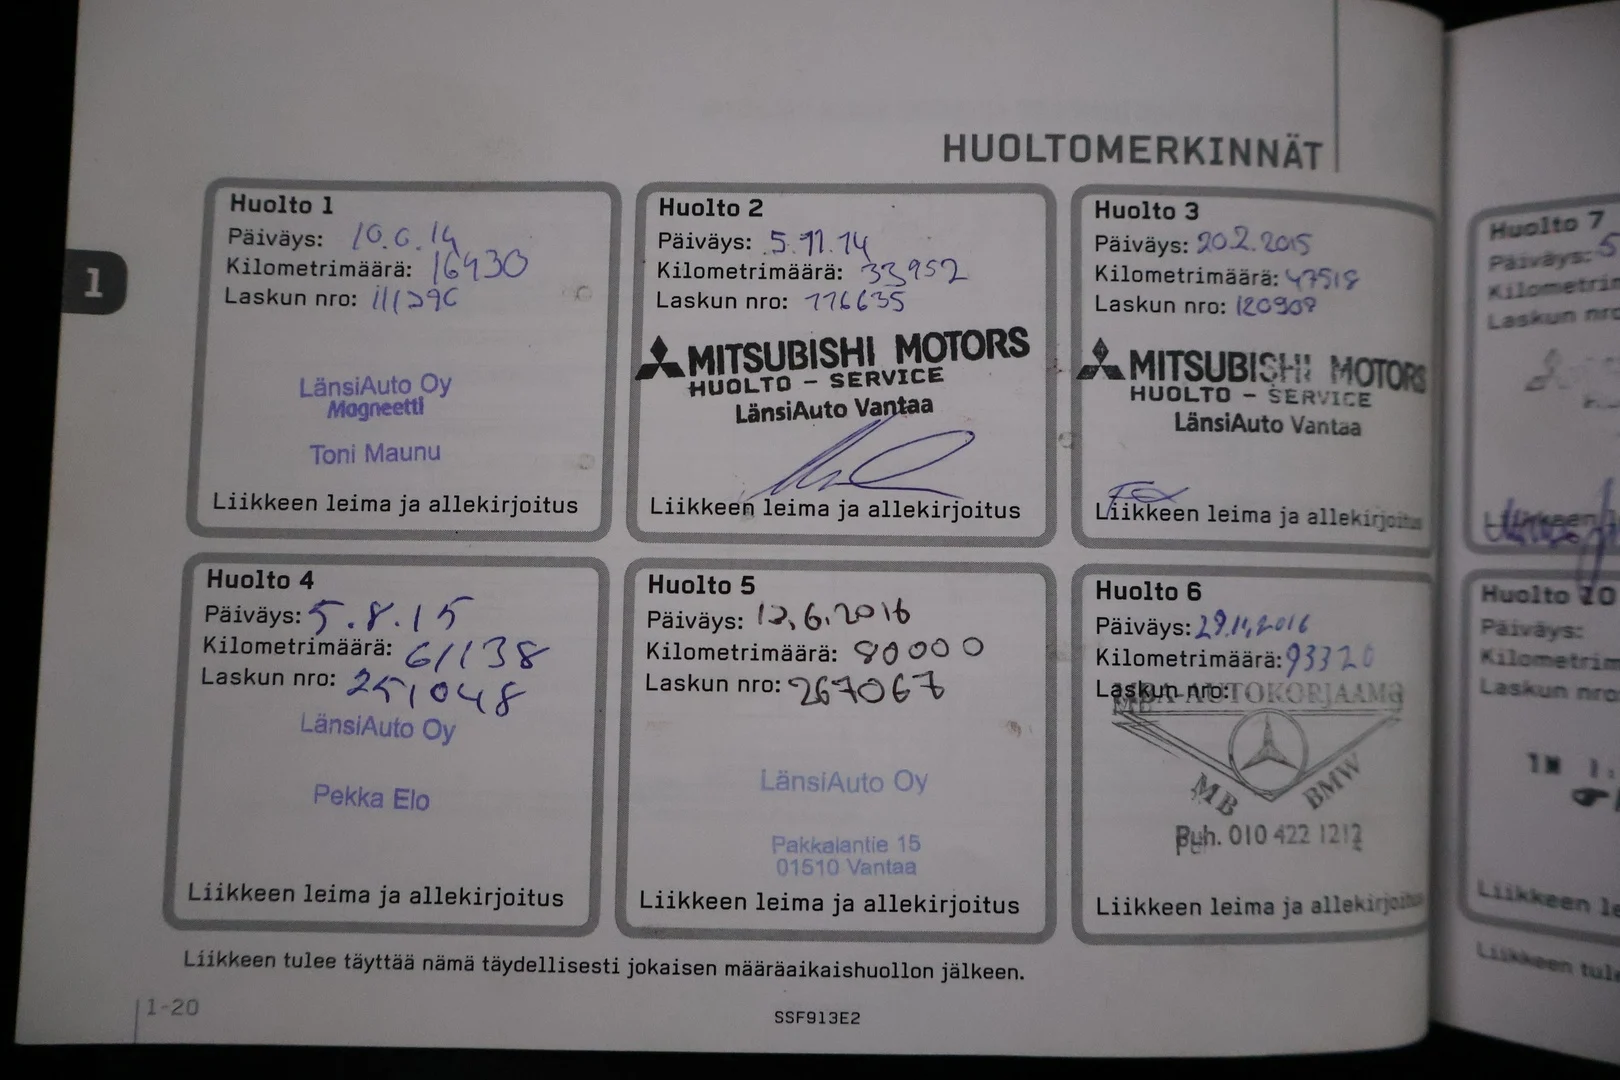 HUOLTOMERKINNÄT
1
Huolto 1
Päiväys: 10.6.14
Kilometrimäärä: 16430
Laskun nro:
LänsiAuto Oy
Magneetti
Toni Maunu
Liikkeen leima ja allekirjoitus
Huolto 2
Päiväys: 5.11.14
Kilometrimäärä: 33952
Laskun nro: 116635
MITSUBISHI MOTORS
HUOLTO - SERVICE
LänsiAuto Vantaa
Liikkeen leima ja allekirjoitus
Huolto 3
Päiväys: 20.2.2015
Kilometrimäärä: 47518
Laskun nro: 120909
MITSUBISHI MOTORS
HUOLTO - SERVICE
LänsiAuto Vantaa
Liikkeen leima ja allekirjoitus
Huolto 4
Päiväys: 5.8.15
Kilometrimäärä: 61138
Laskun nro: 251048
LänsiAuto Oy
Pekka Elo
Liikkeen leima ja allekirjoitus
Huolto 5
Päiväys: 13.6.2016
Kilometrimäärä: 80000
Laskun nro: 267067
LänsiAuto Oy
Pakkalantie 15
01510 Vantaa
Liikkeen leima ja allekirjoitus
Huolto 6
Päiväys: 29.11.2016
Kilometrimäärä: 93320
Laskun nro:
MBA-AUTOKORJAAMO
MB BMW
Puh. 010 422 1212
Liikkeen leima ja allekirjoitus
Liikkeen tulee täyttää nämä täydellisesti jokaisen määräaikaishuollon jälkeen.
1-20
SSF913E2
Huolto 7
Päiväys: 5
Kilometrim
Laskun nro
Liikkeen
Huolto 10
Päiväys:
Kilometrim
Laskun nro
Liikkeen le
Liikkeen tul